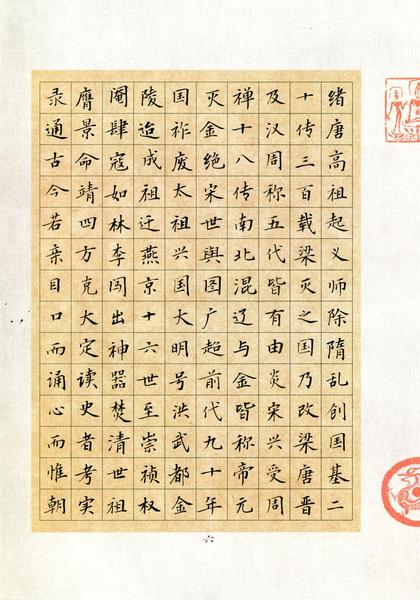 绪唐高祖起义师除隋乱创国基二
十传三百载梁灭之国乃改梁唐晋
及汉周称五代皆有由炎宋兴受周
禅十八传南北混辽与金皆称帝元
灭金绝宋世舆图广超前代九十年
国祚废太祖兴国大明号洪武都金
陵迨成祖迁燕京十六世至崇祯权
阉肆寇如林李闯出神器焚清世祖
膺景命靖四方克大定读史者考实
录通古今若亲目口而诵心而惟朝
六